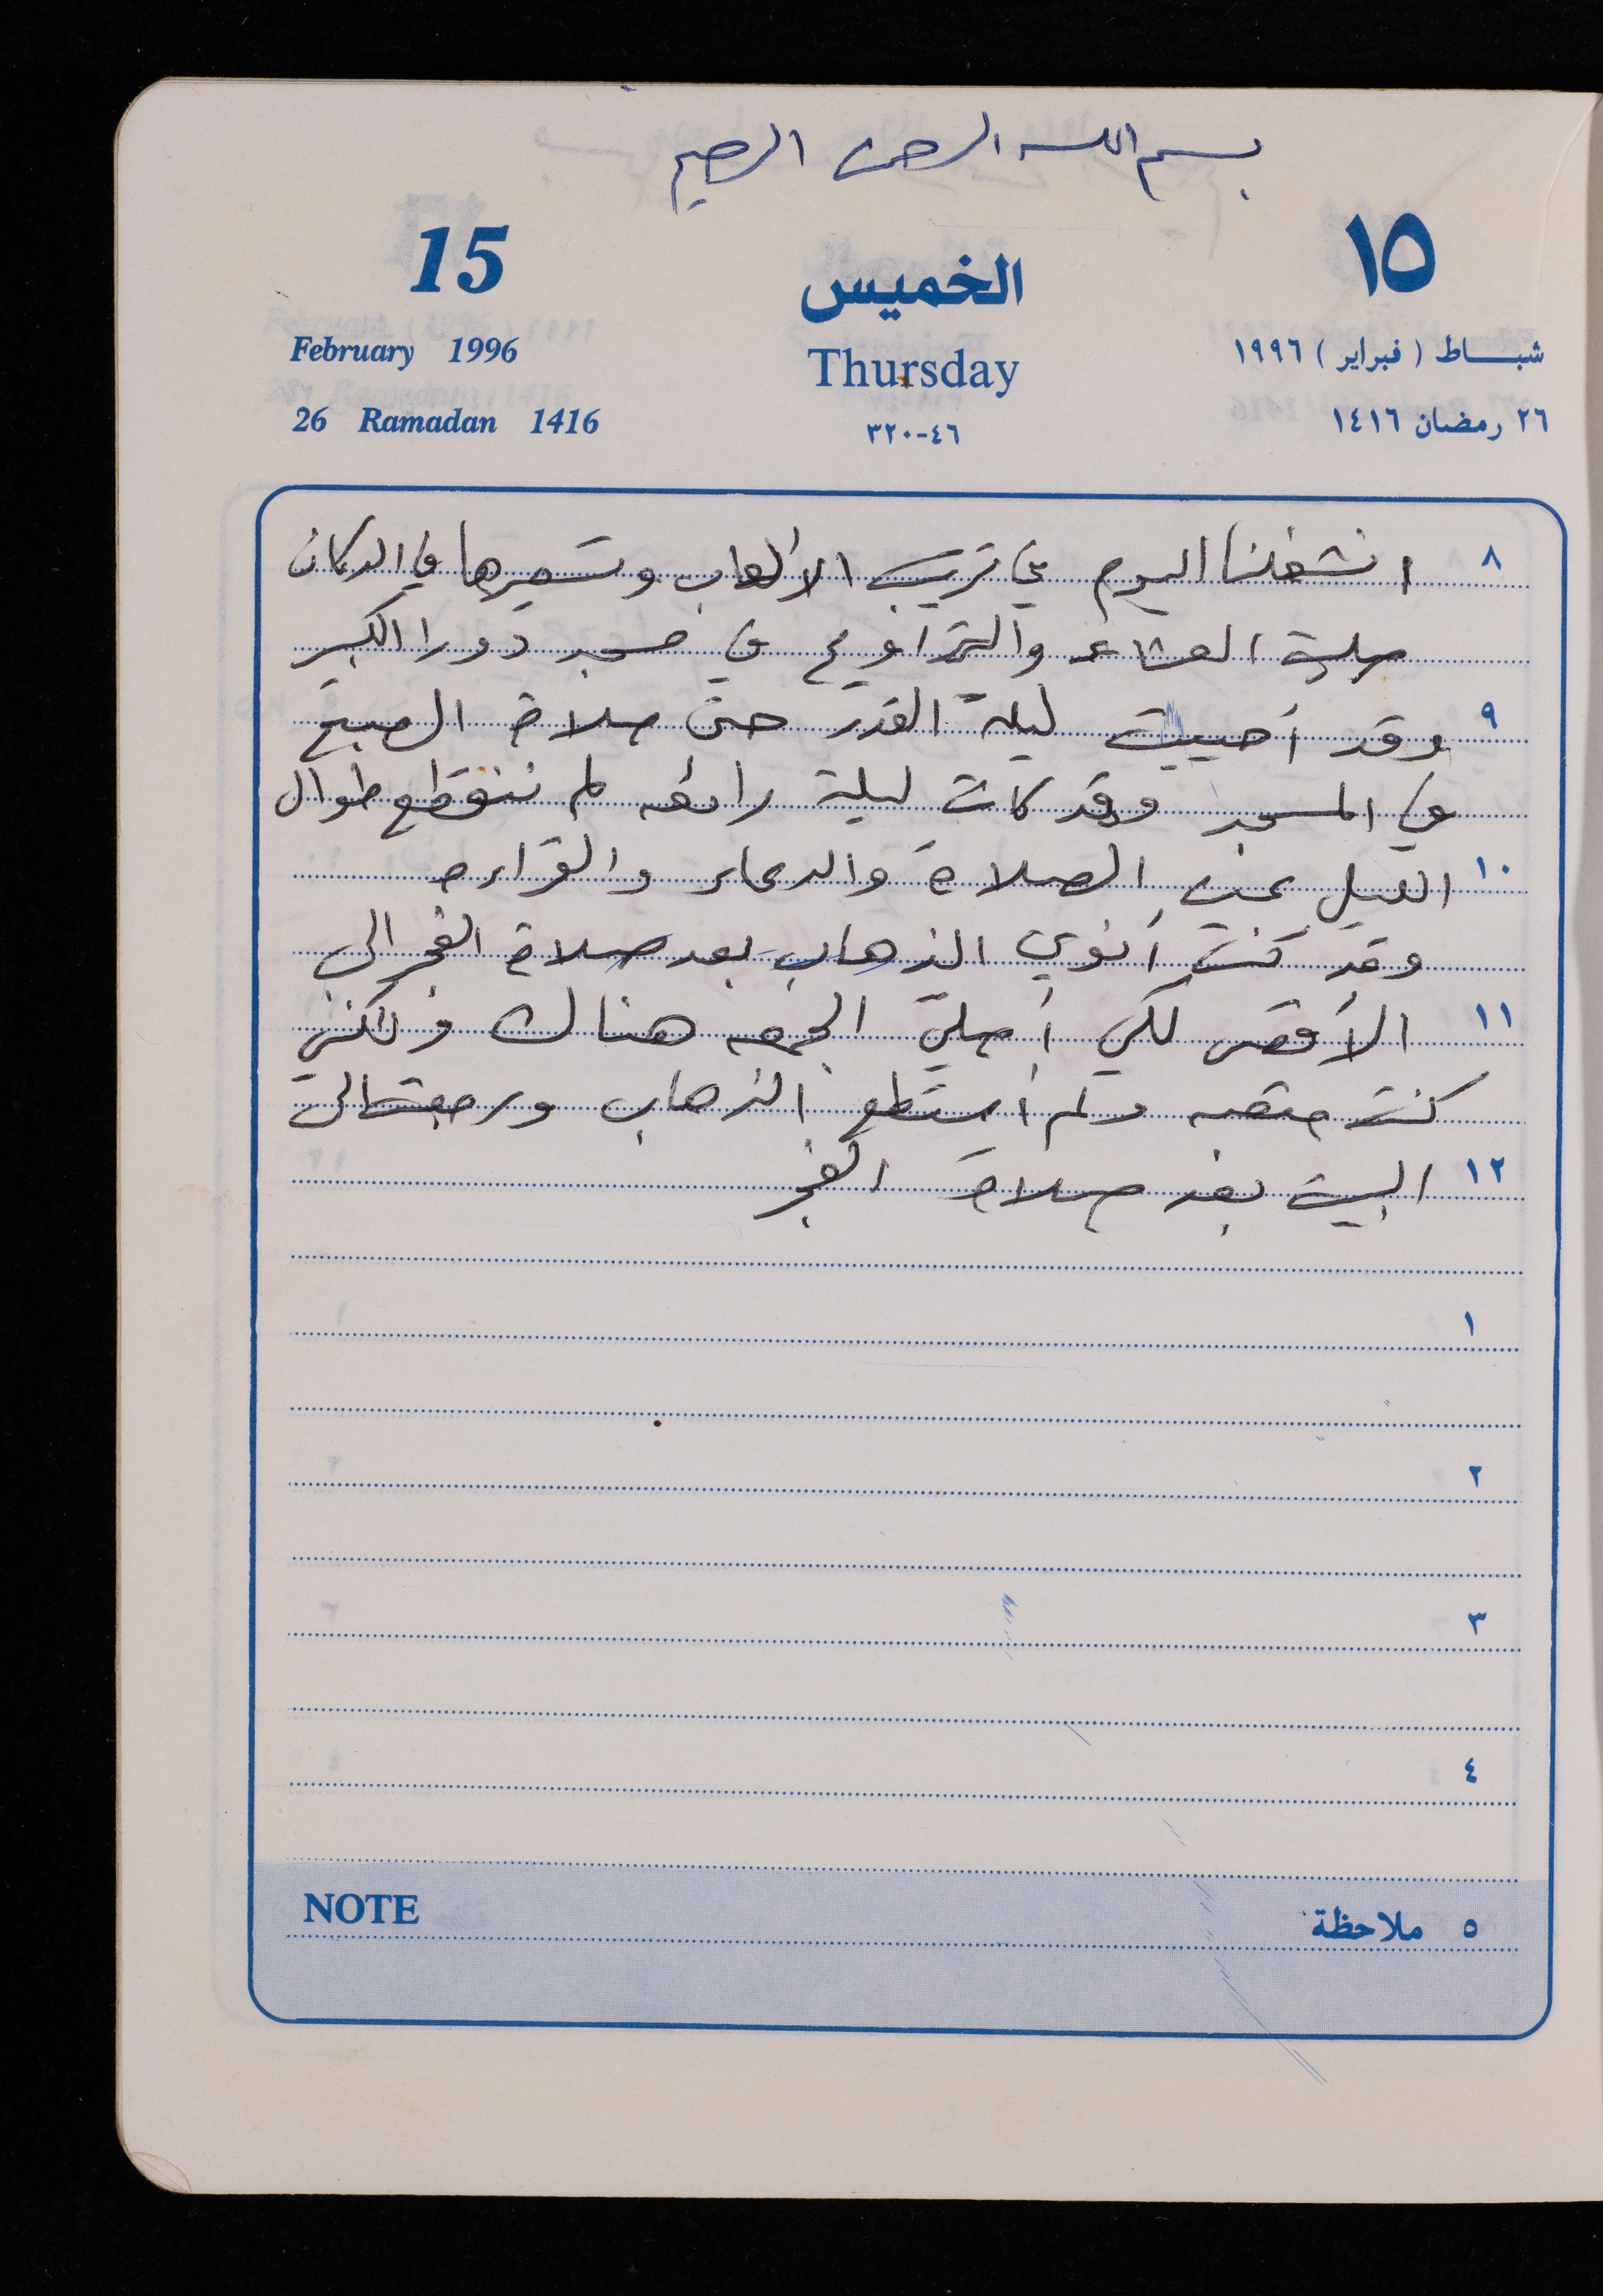 بسم الله الرحمن الرحيم
15 الخميس ١٥
February 1996 Thursday شباط (فبراير) ١٩٩٦
26 Ramadan 1416 ٤٦-٣٢٠ ٢٦ رمضان ١٤١٦
٨ انشغلنا اليوم في ترتيب الألعاب وتسعيرها في الدكان
صليت العشاء والتراويح في مسجد دورا الكبير
٩ وقد أحييت ليلة القدر حتى صلاة الصبح
في المسجد وقد كانت ليلة رائعه لم ننقطع طوال
١٠ الليل عن الصلاة والدعاء والقراءه
وقد كنت أنوي الذهاب بعد صلاة الفجر الى
١١ الأقصى لكي أصلي الجمعه هناك ولكني
كنت متعبه ولم أستطع الذهاب ورجعت الى
١٢ البيت بعد صلاة الفجر
١
٢
٣
٤
NOTE ٥ ملاحظة